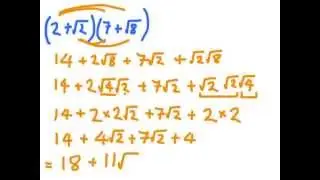 (2+√2)(7+√8)
14 + 2√8 + 7√2 + √2√8
14 + 2√4√2 + 7√2 + √2 √2√4
14 + 2×2√2 + 7√2 + 2×2
14 + 4√2 + 7√2 + 4
= 18 + 11√